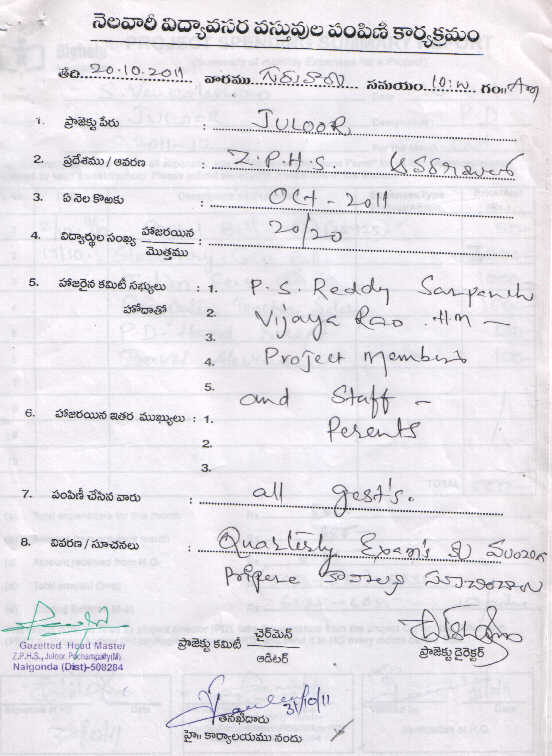 నెలవారీ విద్యావసర వస్తువుల పంపిణీ కార్యక్రమం
తేది. 20.10.2011 వారము. గురువారం సమయం. 10:10 గం॥ Am
1. ప్రాజెక్టు పేరు : JULOOR
2. ప్రదేశము / ఆవరణ : Z.P.H.S.
3. ఏ నెల కొఱకు : OCT - 2011
4. విద్యార్థుల సంఖ్య హాజరయిన / మొత్తము : 20/20
5. హాజరైన కమిటీ సభ్యులు హోదాతో : 1. P. S. Reddy Sarpanch
2. Vijaya Rao .HM —
3.
4. Project Members
5. and Staff —
6. హాజరయిన ఇతర ముఖ్యులు : 1. Perents
2.
3.
7. పంపిణీ చేసిన వారు : all gest's.
8. వివరణ / సూచనలు : Quarterly Exam's కు
Prepere కావాలని సూచించారు
Gazetted Head Master
Z.P.H.S., Juloor, Pochampally(M)
Nalgonda (Dist)-508284
ప్రాజెక్టు కమిటీ చైర్‌మెన్ / ఆడిటర్
ప్రాజెక్టు డైరెక్టర్
31/10/11
తనిఖీదారు
హై॥ కార్యాలయము నందు
TOTAL